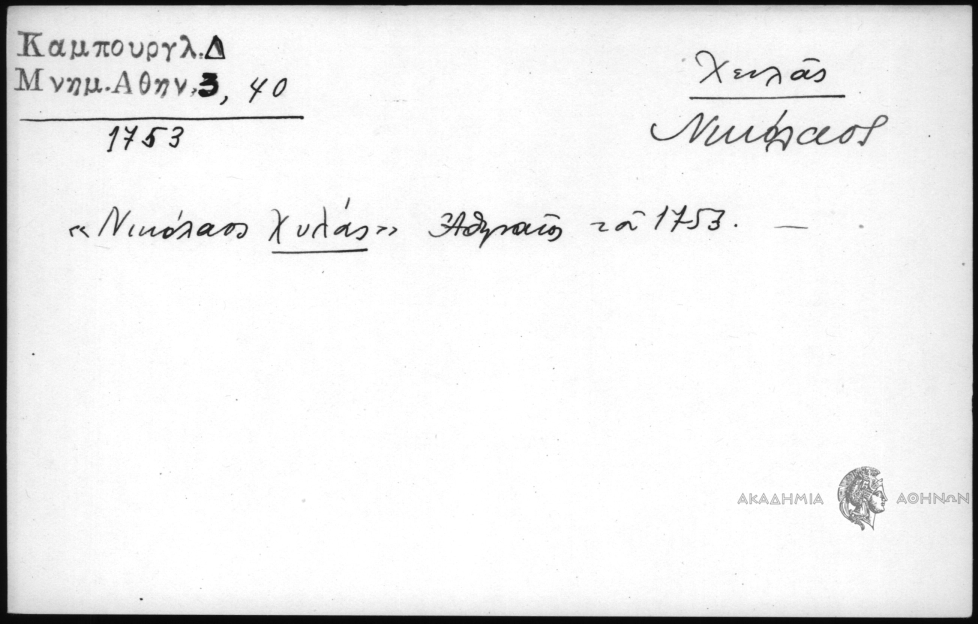 Καμπουργλ.Δ
Μνημ.Αθην.3, 40
1753
Χειλᾶς
Νικόλαος
«Νικόλαος Χυλάς» Ἀθηναῖος τῷ 1753. —
ΑΚΑΔΗΜΙΑ ΑΘΗΝΩΝ